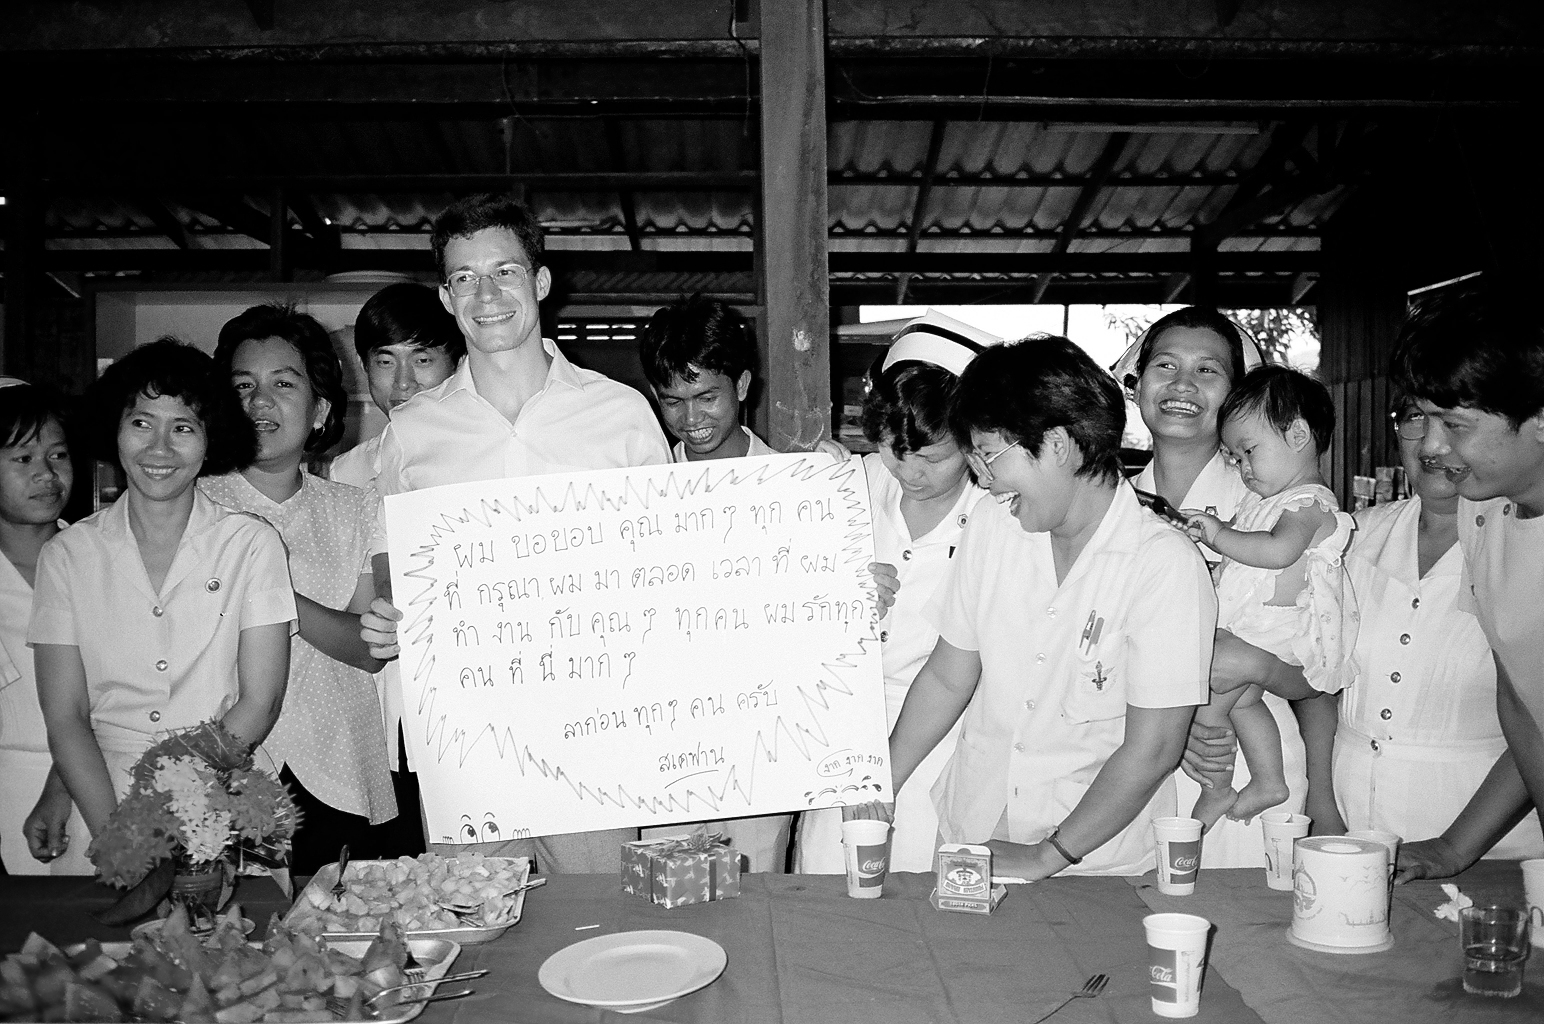 ผม ขอขอบ คุณ มาก ๆ ทุก คน
ที่ กรุณา ผม มา ตลอด เวลา ที่ ผม
ทำ งาน กับ คุณ ๆ ทุกคน ผม รักทุก
คน ที่ นี่ มาก ๆ
ลาก่อน ทุกๆ คน ครับ
สเตฟาน
Coca-Cola
Coca-Cola
Cola